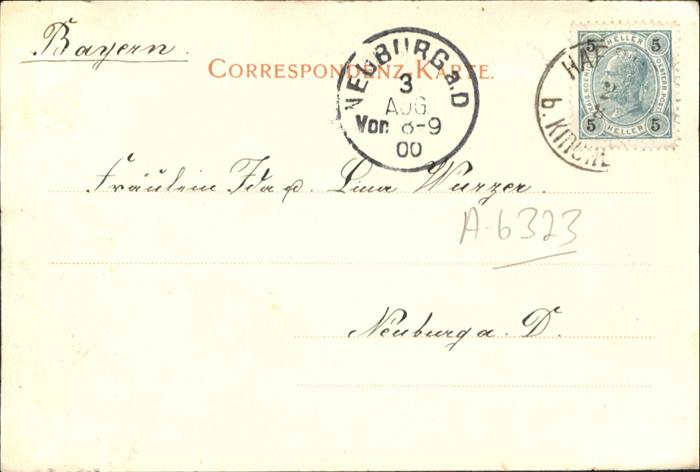 Bayern.
CORRESPONDENZ-KARTE.
NEUBURG a.D
3
AUG.
Vor. 8-9
00
5 HELLER 5
5 HELLER 5
b. KIRCH
Fräulein Ida u. Lina Wurzer.
A-6323
Neuburg a. D.